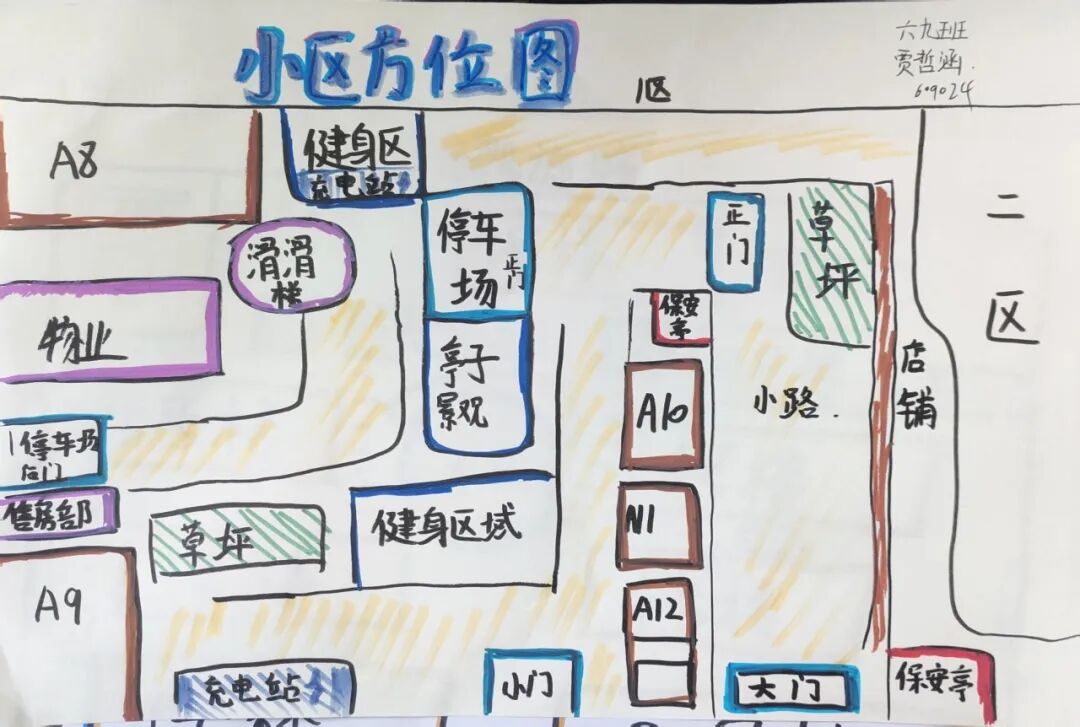 小区方位图
六九班
贾哲涵.
609024
1区
A8
健身区
充电站
滑滑
梯
停车
场
正
门
正
门
草
坪
二
区
物业
亭子
景观
保安
亭
A10
小路.
店
铺
停车场
后门
售房部
草坪
健身区域
N1
A9
A12
充电站
小门
大门
保安亭